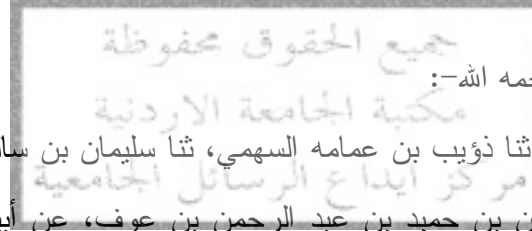 جميع الحقوق محفوظة
حمه الله-:
مكتبة الجامعة الاردنية
ثنا ذؤيب بن عمامه السهمي، ثنا سليمان بن سا
مركز ايداع الرسائل الجامعية
بن حميد بن عبد الرحمن بن عوف، عن أبي